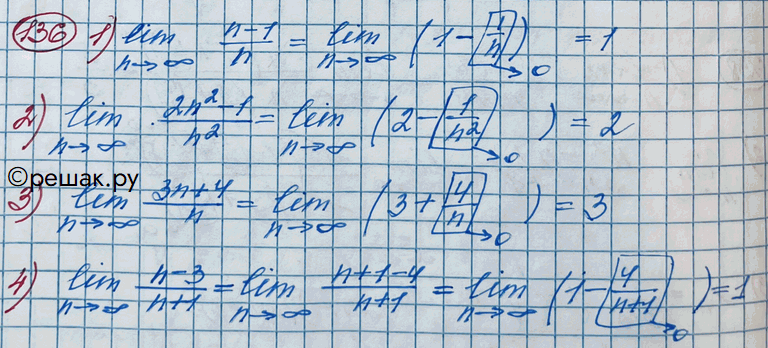 136 1) lim n→∞ (n-1)/n = lim n→∞ (1 - 1/n →0) = 1
2) lim n→∞ (2n²-1)/n² = lim n→∞ (2 - 1/n² →0) = 2
©решак.ру
3) lim n→∞ (3n+4)/n = lim n→∞ (3 + 4/n →0) = 3
4) lim n→∞ (n-3)/(n+1) = lim n→∞ (n+1-4)/(n+1) = lim n→∞ (1 - 4/(n+1) →0) = 1